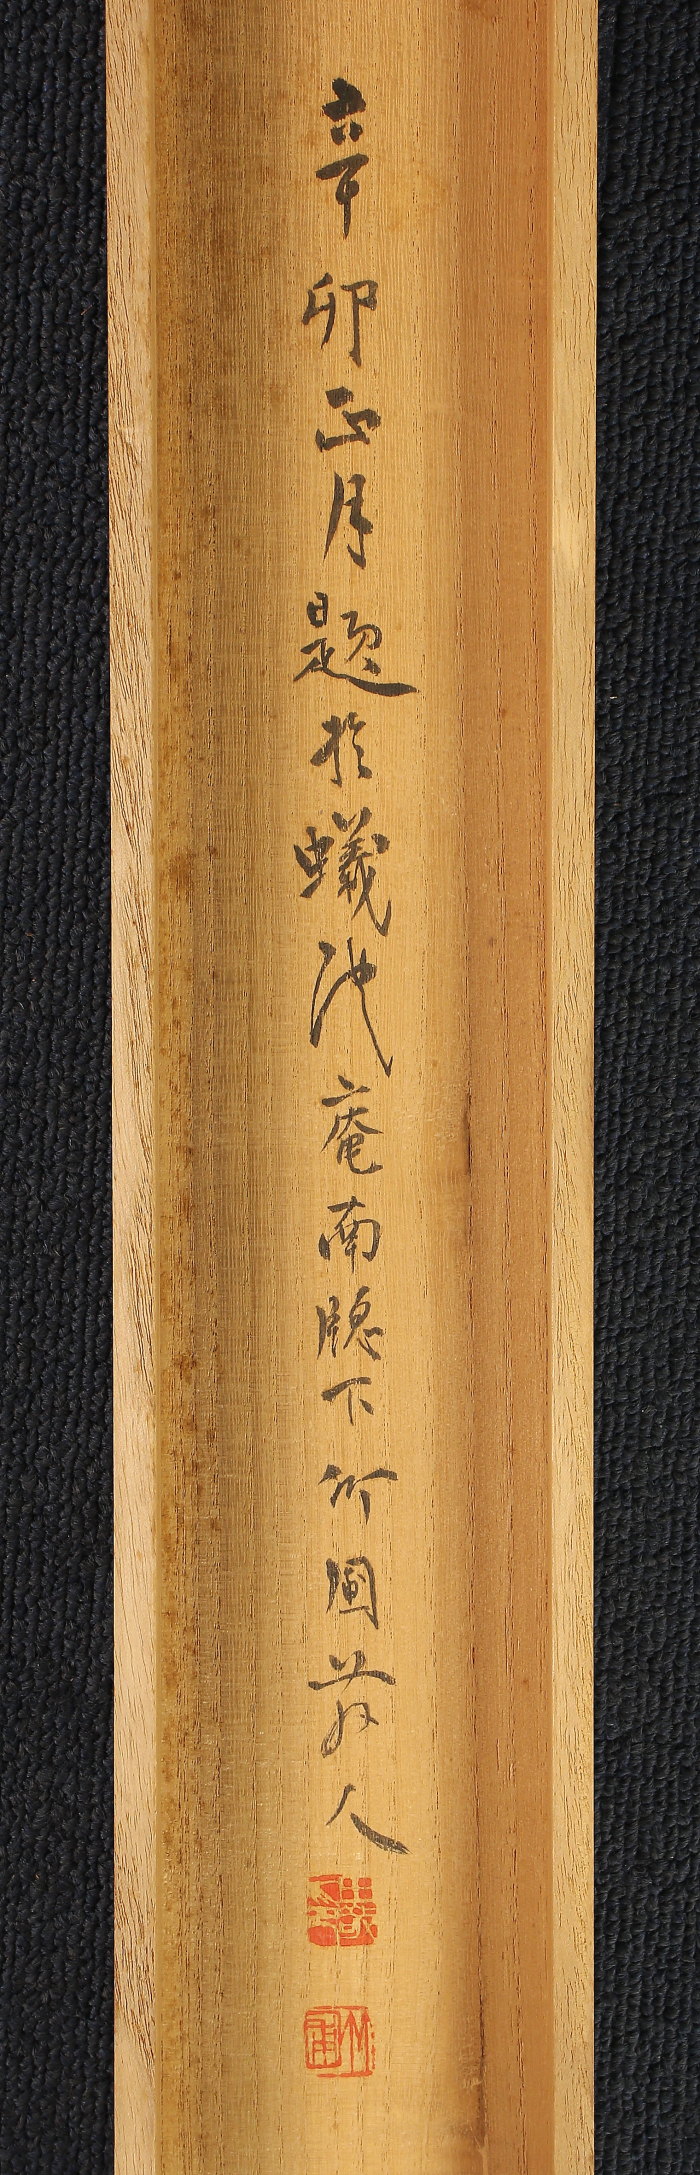 辛卯正月題於蟻池庵南牕下竹圃散人